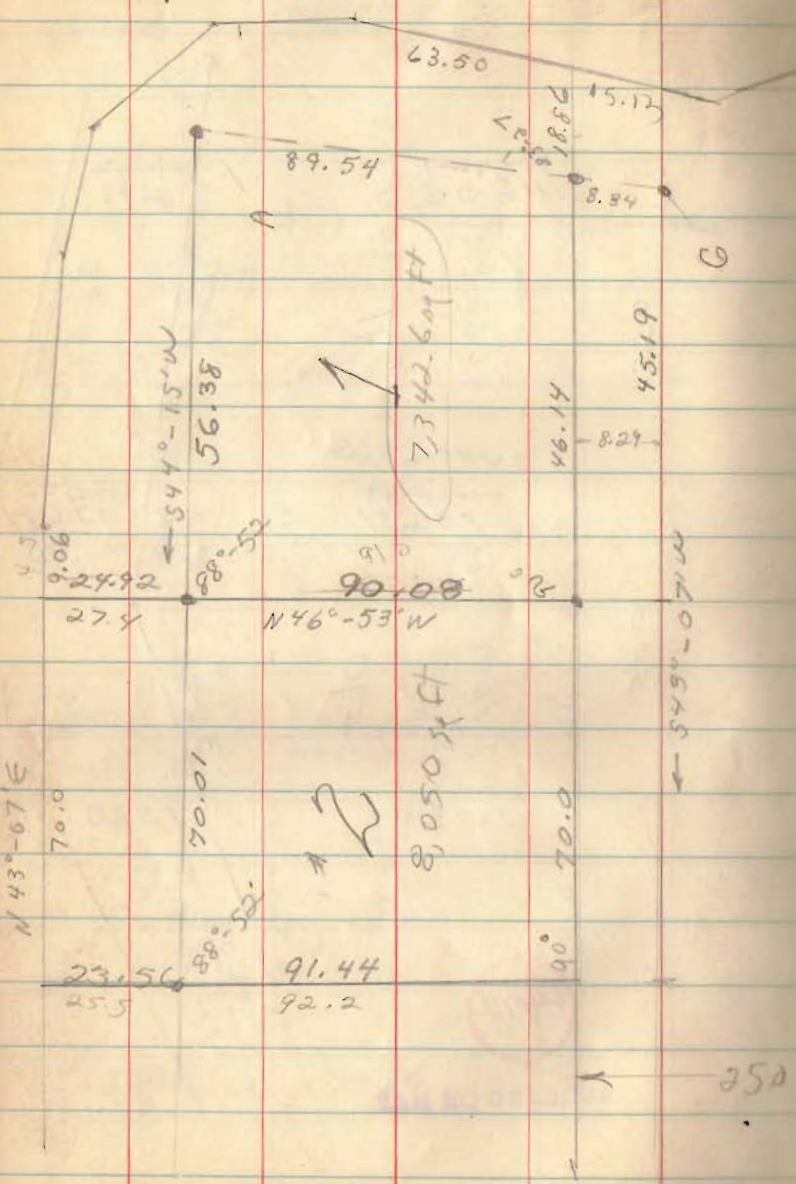 63.50
15.13
18.86
89.54
8.84
S 44°-15' W
56.38
1
7,342.6 sq Ft
46.14
8.29
45.19
9.06
24.92
27.4
88°-52
90.08
N 46°-53' W
S 43°-07' W
N 43°-07' E
70.0
70.01
# 2
8,050 sq ft
70.0
23.56
25.5
88°-52'
91.44
92.2
90°
250